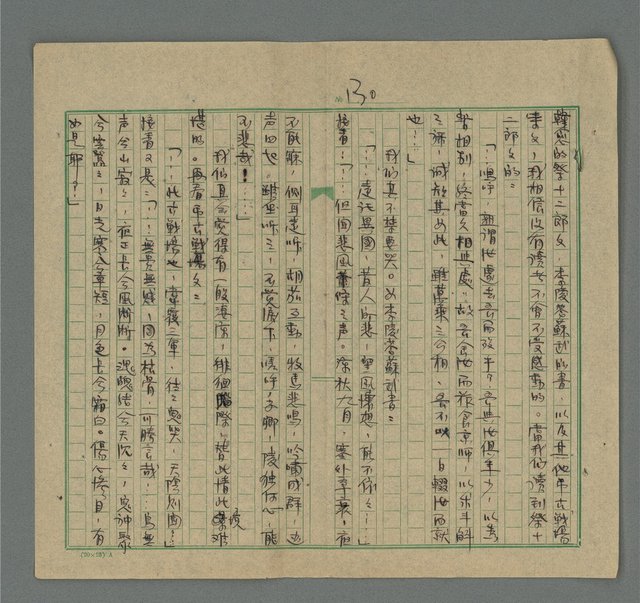 130
韓愈的祭十二郎文，李陵答蘇武的書，以及其他弔古戰場
李文，我相信沒有讀者不會不受感動的。當我們讀到祭十
二郎文的：
「…嗚呼，孰謂汝遽去吾而歿乎？吾與汝俱年少，以為
暫相別，終當久相與處。故舍汝而旅食京師，以求斗斛
之祿，誠知其如此，雖萬乘之公相，吾不以一日輟汝而就
也…」
我們真不禁要哭。又李陵答蘇武書：
「…遠託異國，昔人所悲，望風懷想，能不依依…」
接看：「…但聞悲風蕭條之聲。涼秋九月，塞外草衰，夜
不能寐，側耳遠聽，胡笳互動，牧馬悲鳴，吟嘯成群，邊
聲四起。晨坐聽之，不覺淚下，嗟呼，子卿，陵獨何心，能
不悲哉！…」
我們真會覺得有一股淒涼，徘徊際，皆此情此景難
堪的。再看弔古戰場文：
「…此古戰場也，常覆三軍，往往鬼哭，天陰則聞…」
接看又是：「…無貴無賤，同為枯骨，可勝言哉……鳥無
声兮山寂寂，夜正長兮風淅淅。魂魄結兮天沉沉，鬼神聚
兮雲冪冪，日光寒兮草短，月色苦兮霜白。傷心慘目，有
如是耶？」
(20×25) A